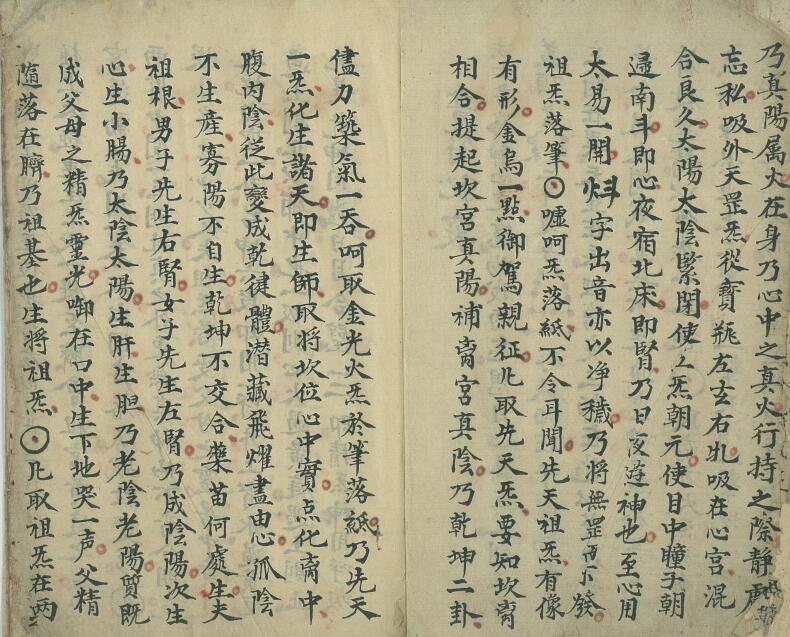 乃真陽属火在身乃心中之真火行持之際静
忘私吸外天罡炁從寳瓶左玄右牝吸在心宫混
合良久太陽太陰緊閉使乀炁朝元使目中瞳子朝
邊南斗即心夜宿北床即腎乃日夜遊神也至心用
太易一開字出音亦以净穢乃将無罡而下發
祖炁落筆〇嘘呵炁落紙不令耳聞先天祖炁有像
有形金烏一點御駕親征凡取先天炁要知坎离
相合提起坎宫真陽補离宫真陰乃乾坤二卦
儘力築氣一吞呵取金光火炁於筆落紙乃先天
一炁化生諸天即生師取将坎位心中實点化离中
腹内陰從此變成乾健體潜藏飛燿盡由心孤陰
不生産寡陽不自生乾坤不交合藥苗何處生夫
祖根男子先生右腎女子先生左腎乃成陰陽次生
心生小腸乃太陰太陽生肝生胆乃老陰老陽質既
成父母之精炁靈光啣在口中生下地哭一声父精
随落在臍乃祖基也生将祖炁⊙凡取祖炁在两